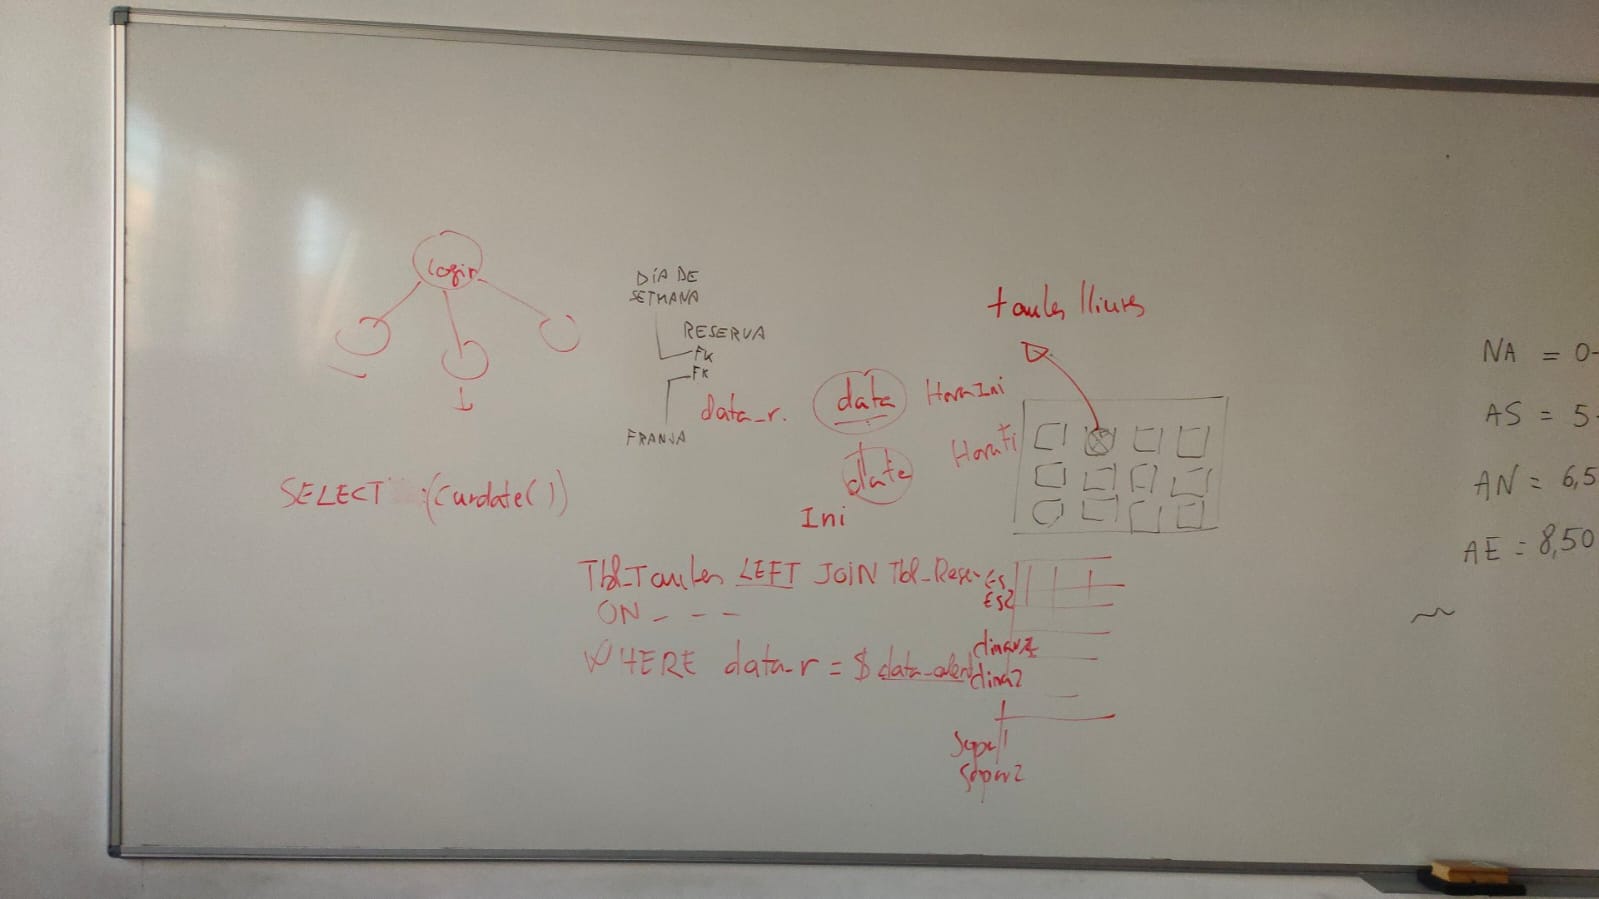 login
DÍA DE
SETMANA
RESERVA
FK
FK
FRANJA
data_r.
data
date
Ini
HoraIni
HoraFi
taules lliures
SELECT (curdate())
Tbl_Taules LEFT JOIN Tbl_Reser
ON - - -
WHERE data_r = $data_
Es
Es2
dinar1
dinar2
Sopar1
Sopar2
NA = 0-
AS = 5-
AN = 6,5
AE = 8,50